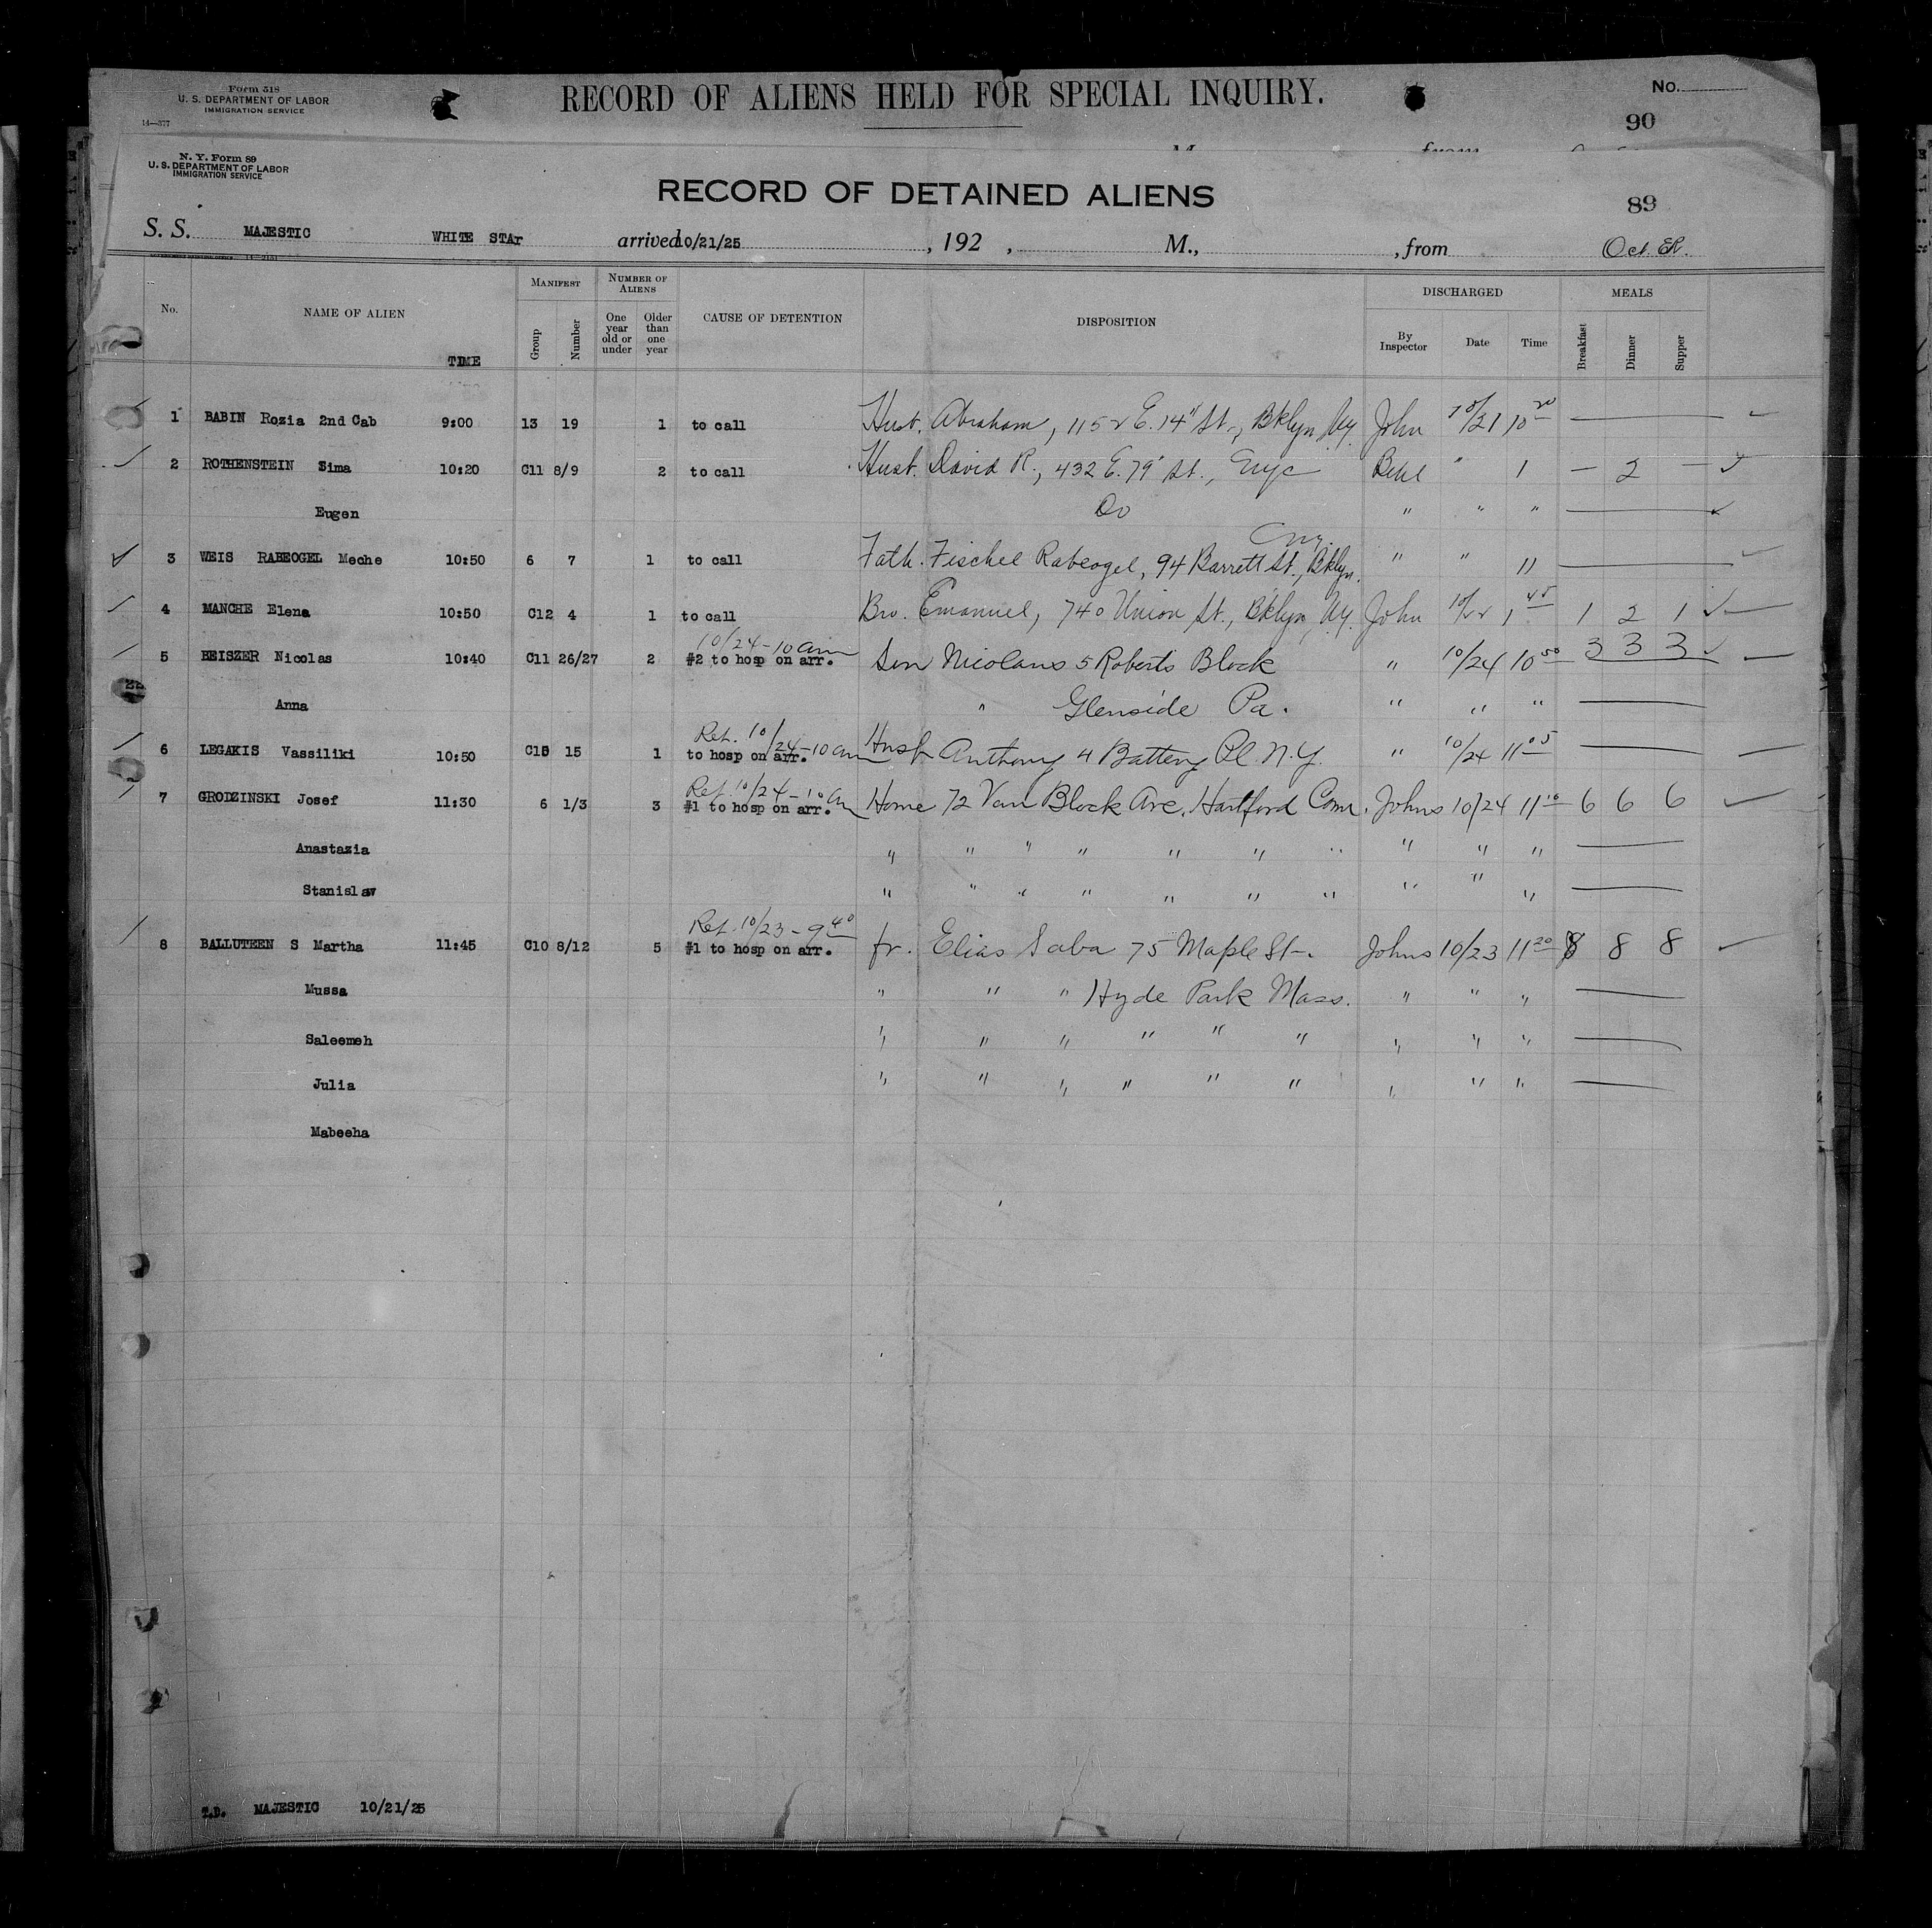 Form 518
U. S. DEPARTMENT OF LABOR
IMMIGRATION SERVICE
14—377
RECORD OF ALIENS HELD FOR SPECIAL INQUIRY.
No.
90
from
N. Y. Form 89
U. S. DEPARTMENT OF LABOR
IMMIGRATION SERVICE
RECORD OF DETAINED ALIENS
89
S. S. MAJESTIC WHITE STAr arrived 10/21/25 , 192 , M., , from Oct. ER.
No. NAME OF ALIEN TIME MANIFEST Group Number NUMBER OF ALIENS One year old or under Older than one year CAUSE OF DETENTION DISPOSITION DISCHARGED By Inspector Date Time MEALS Breakfast Dinner Supper
1 BABIN Rozia 2nd Cab 9:00 13 19 1 to call Hust. Abraham, 1152 E. 14" St., Bklyn Ny. John 10/21 10 20
2 ROTHENSTEIN Sima 10:20 C11 8/9 2 to call Hust. David R., 432 E. 79" St., Nyc " 1 — 2 —
Eugen Do " " "
3 WEIS RABEOGEL Meche 10:50 6 7 1 to call Fath. Fischel Rabeogel, 94 Barrett St., Bklyn. Ny. " " "
4 MANCHE Elena 10:50 C12 4 1 to call Bro. Emanuel, 740 Union St., Bklyn, Ny. John 10/22 1 45 1 2 1
10/24-10am
5 BEISZER Nicolas 10:40 C11 26/27 2 #2 to hosp on arr. Son Nicolaus 5 Roberts Block " 10/24 10 50 3 3 3
Anna " Glenside Pa. " " "
Ret. 10/24-10am
6 LEGAKIS Vassiliki 10:50 C10 15 1 to hosp on arr. Husb Anthony 4 Battery Pl. N.Y. " 10/24 11 05
Ret. 10/24-10am
7 GRODZINSKI Josef 11:30 6 1/3 3 #1 to hosp on arr. Home 72 Van Block Ave. Hartford Conn. Johns 10/24 11 10 6 6 6
Anastazia " " " " " " " " " "
Stanislaw " " " " " " " " " "
Ret. 10/23-9 40
8 BALLUTEEN S Martha 11:45 C10 8/12 5 #1 to hosp on arr. fr. Elias Saba 75 Maple St-. Johns 10/23 11 20 8 8 8
Mussa " " " Hyde Park Mass. " " "
Saleemeh " " " " " " " " "
Julia " " " " " " " " "
Mabeeha
T.D. MAJESTIC 10/21/25